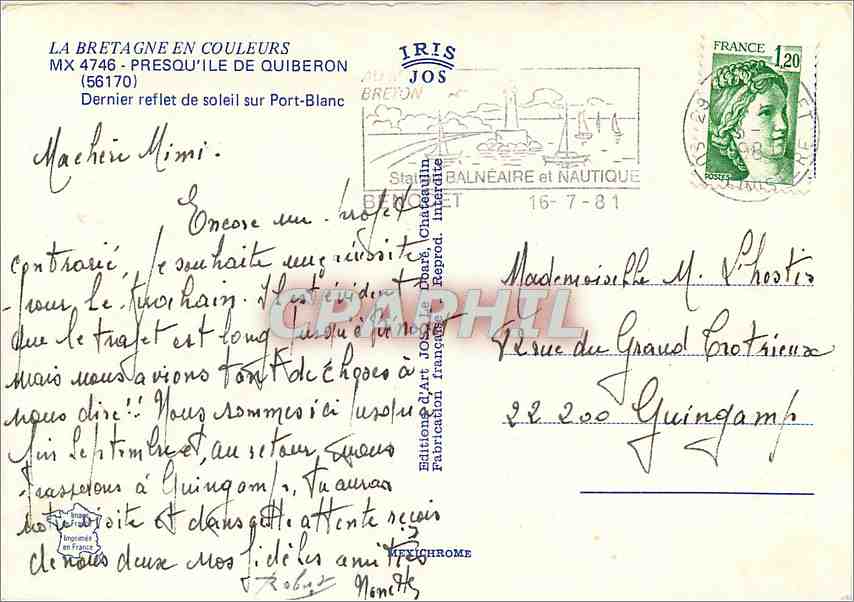 LA BRETAGNE EN COULEURS
MX 4746 - PRESQU'ILE DE QUIBERON
(56170)
Dernier reflet de soleil sur Port-Blanc
IRIS
JOS
BRETON
BALNÉAIRE et NAUTIQUE
BENODET 16-7-81
FRANCE 1,20
POSTES
Ma chère Mimi.
Encore un projet
contrarié, je souhaite une réussite
pour le prochain. Il est évident
que le trajet est long jusqu'à Bénodet
mais nous avions tant de choses à
nous dire!! Nous sommes ici jusqu'à
fin Septembre et, au retour, si nous
passerons à Guingamp, Tu auras
notre visite et dans cette attente reçois
de nous deux nos fidèles amitiés
Robert
Mademoiselle M. L'hostis
7 rue du Grand Trotrieux
22 200 Guingamp
Editions d'Art JOS, le Doaré, Châteaulin
Fabrication française - Reprod. Interdite
MEXICHROME
Imprimée
en France
CPAPHIL